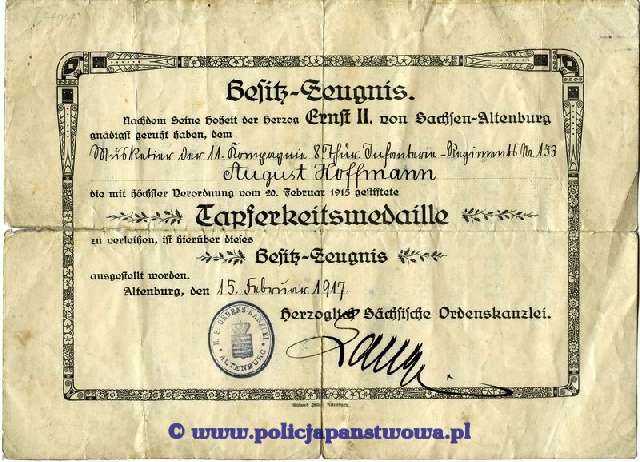 Besitz-Zeugnis.
Nachdem Seine Hoheit der Herzog Ernst II. von Sachsen-Altenburg
gnädigst geruht haben, dem
Musketier der 11. Kompagnie 8. Thür. Infanterie-Regiment Nr. 153
August Hoffmann
die mit höchster Verordnung vom 20. Februar 1915 gestiftete
Tapferkeitsmedaille
zu verleihen, ist hierüber dieses
Besitz-Zeugnis
ausgestellt worden.
Altenburg, den 15. Februar 1917.
Herzoglich Sächsische Ordenskanzlei.
H. S. ORDENS-KANZLEI
ALTENBURG
Lange
© www.policjapanstwowa.pl